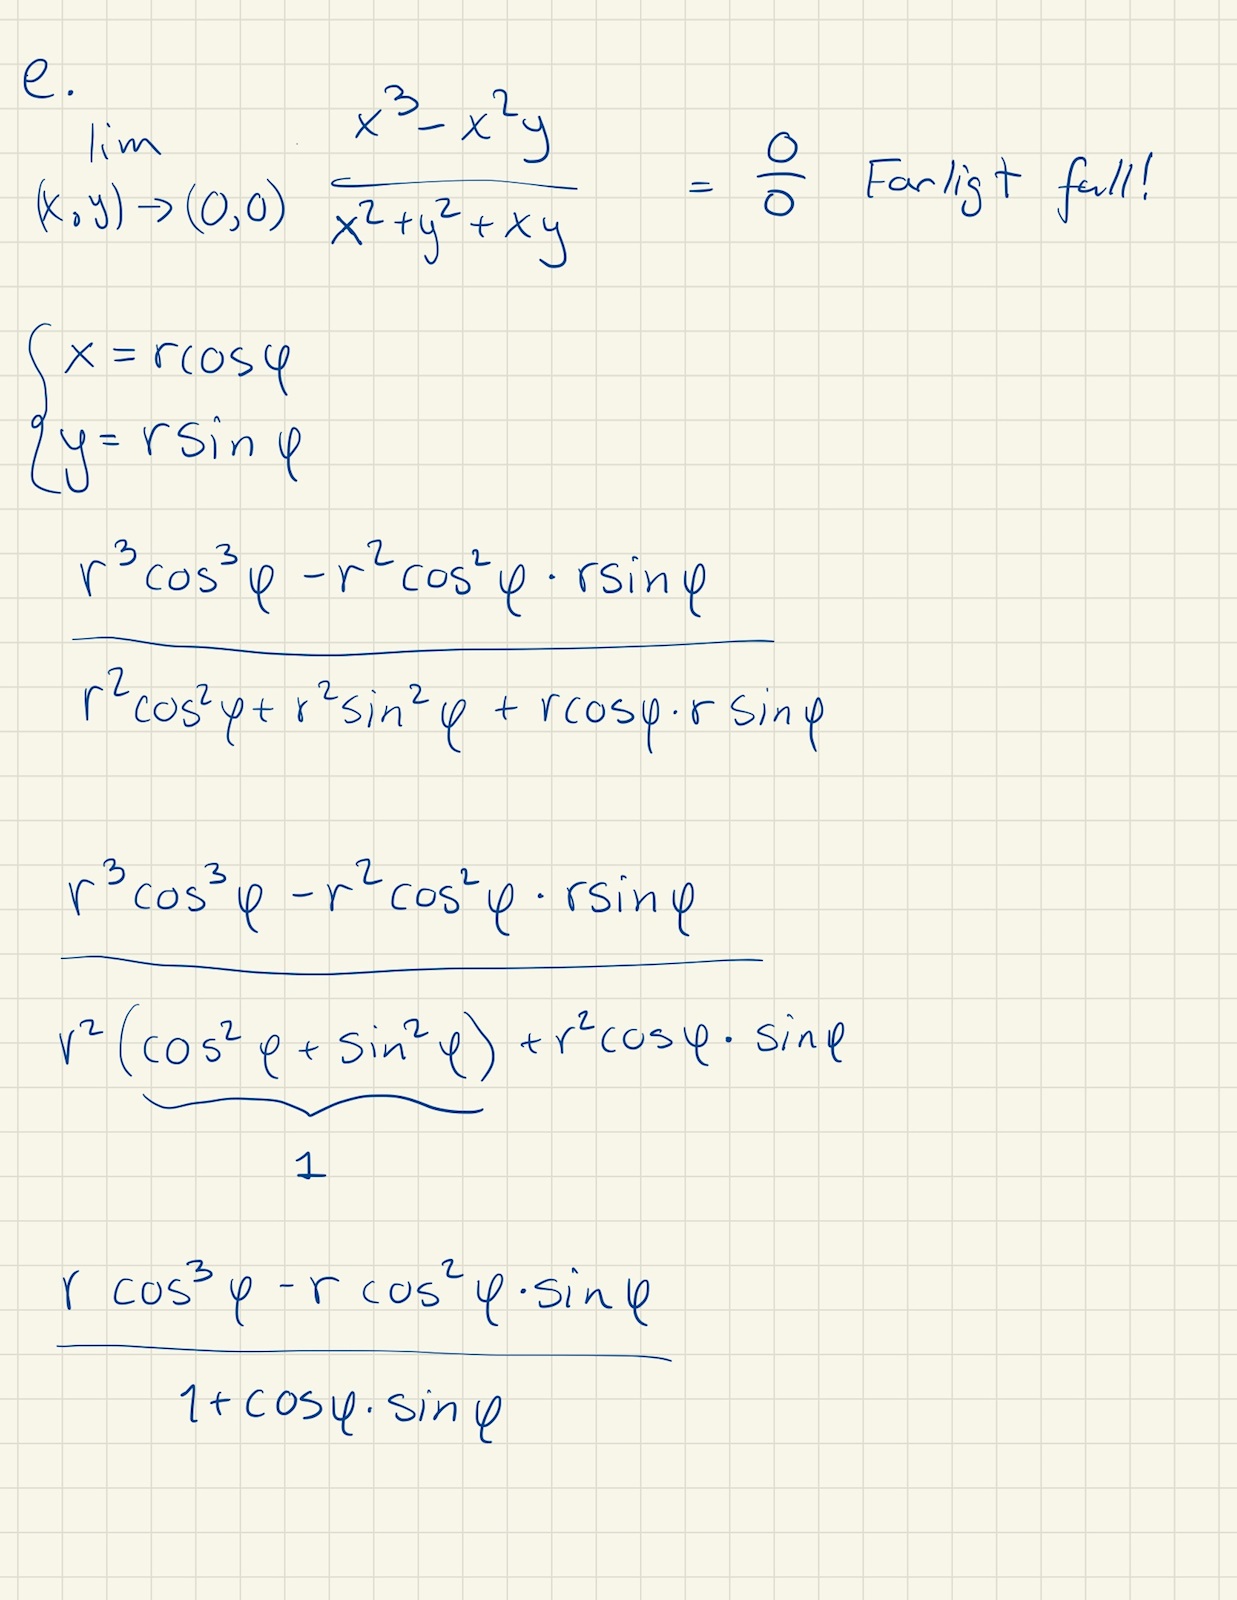 e.
lim (x,y)→(0,0) (x³ - x²y)/(x² + y² + xy) = 0/0 Farligt fall!
{ x = r cos φ
y = r sin φ
r³ cos³ φ - r² cos² φ · r sin φ
r² cos² φ + r² sin² φ + r cos φ · r sin φ
r³ cos³ φ - r² cos² φ · r sin φ
r² (cos² φ + sin² φ) + r² cos φ · sin φ
1
r cos³ φ - r cos² φ · sin φ
1 + cos φ · sin φ